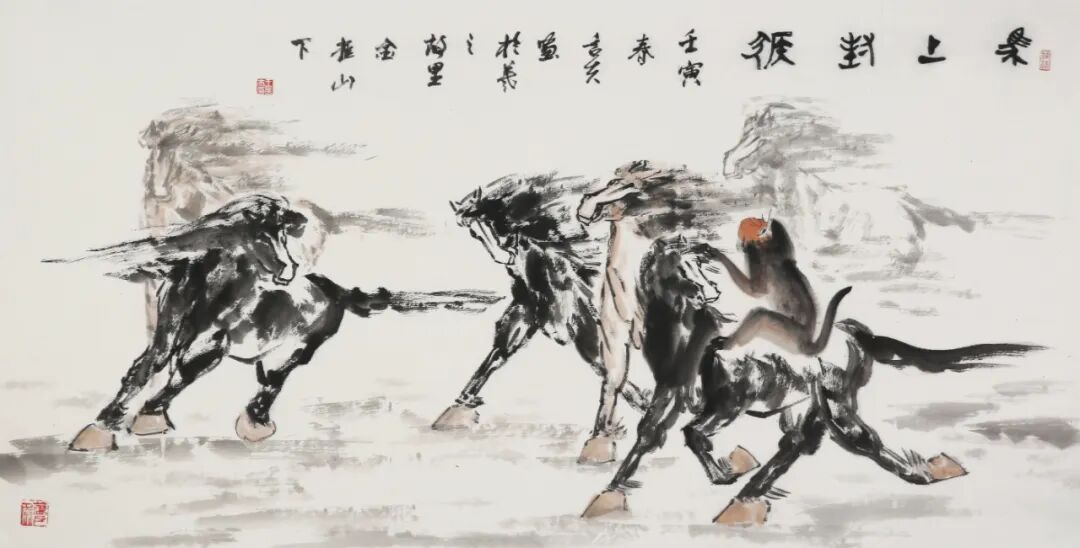 馬上封猴
壬寅
春
畫
於羲
之
故里
金
雀山
下